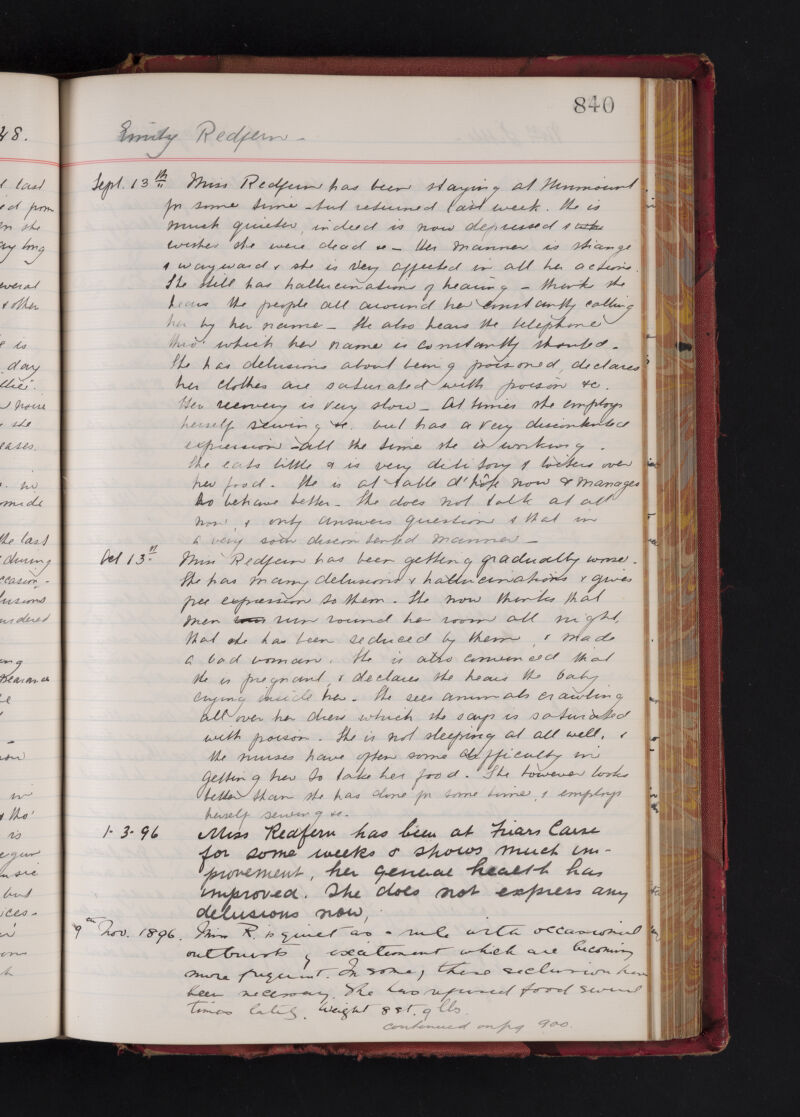 840
Emily Redfern -
Sept. 13th Miss Redfern has been staying at Kinmount
for some time - but returned last week. She is
much quieter, indeed is now depressed &
wishes she were dead &c - Her manner is strange
& wayward & she is very affected in all her actions.
She still has hallucinations of hearing - thinks she
hears the people all around her constantly calling
her by her name - She also hears the telephone
thro' which her name is constantly shouted -
She has delusions about being poisoned, declares
her clothes are saturated with poison &c.
Her recovery is very slow - At times she employs
herself sewing &c. but has a very discontented
expression all the time she is working.
She eats little & is very dilitory & over
her food. She is at table d'hôte now & manages
to behave better - She does not talk at all
now, & only answers question & that in
a very sour discontented manner -
Oct 13th Miss Redfern has been getting gradually worse.
She has many delusions & hallucinations & gives
free expression to them. She now thinks that
men run round her room all night,
that she has been seduced by them, & made
a bad woman. She is also convinced that
she is pregnant, & declares she hears the baby
crying inside her. She sees animals crawling
all over her dress which she says is saturated
with poison. She is not sleeping at all well, &
the nurses have often some difficulty in
getting her to take her food. She however looks
better than she has done for some time, & employs
herself sewing &c.
1-3-96 Miss Redfern has been at Friars Carse
for some weeks & shows much im-
provement, her general health has
improved. She does not express any
delusions now,
9th Nov. 1896. Miss R. is quiet as a rule with occasional
outbursts of excitement which are becoming
more frequent. In some of these seclusion have
been necessary. She has refused food several
times lately. Weight 8 st. 9 lbs.
continued on pg 900.